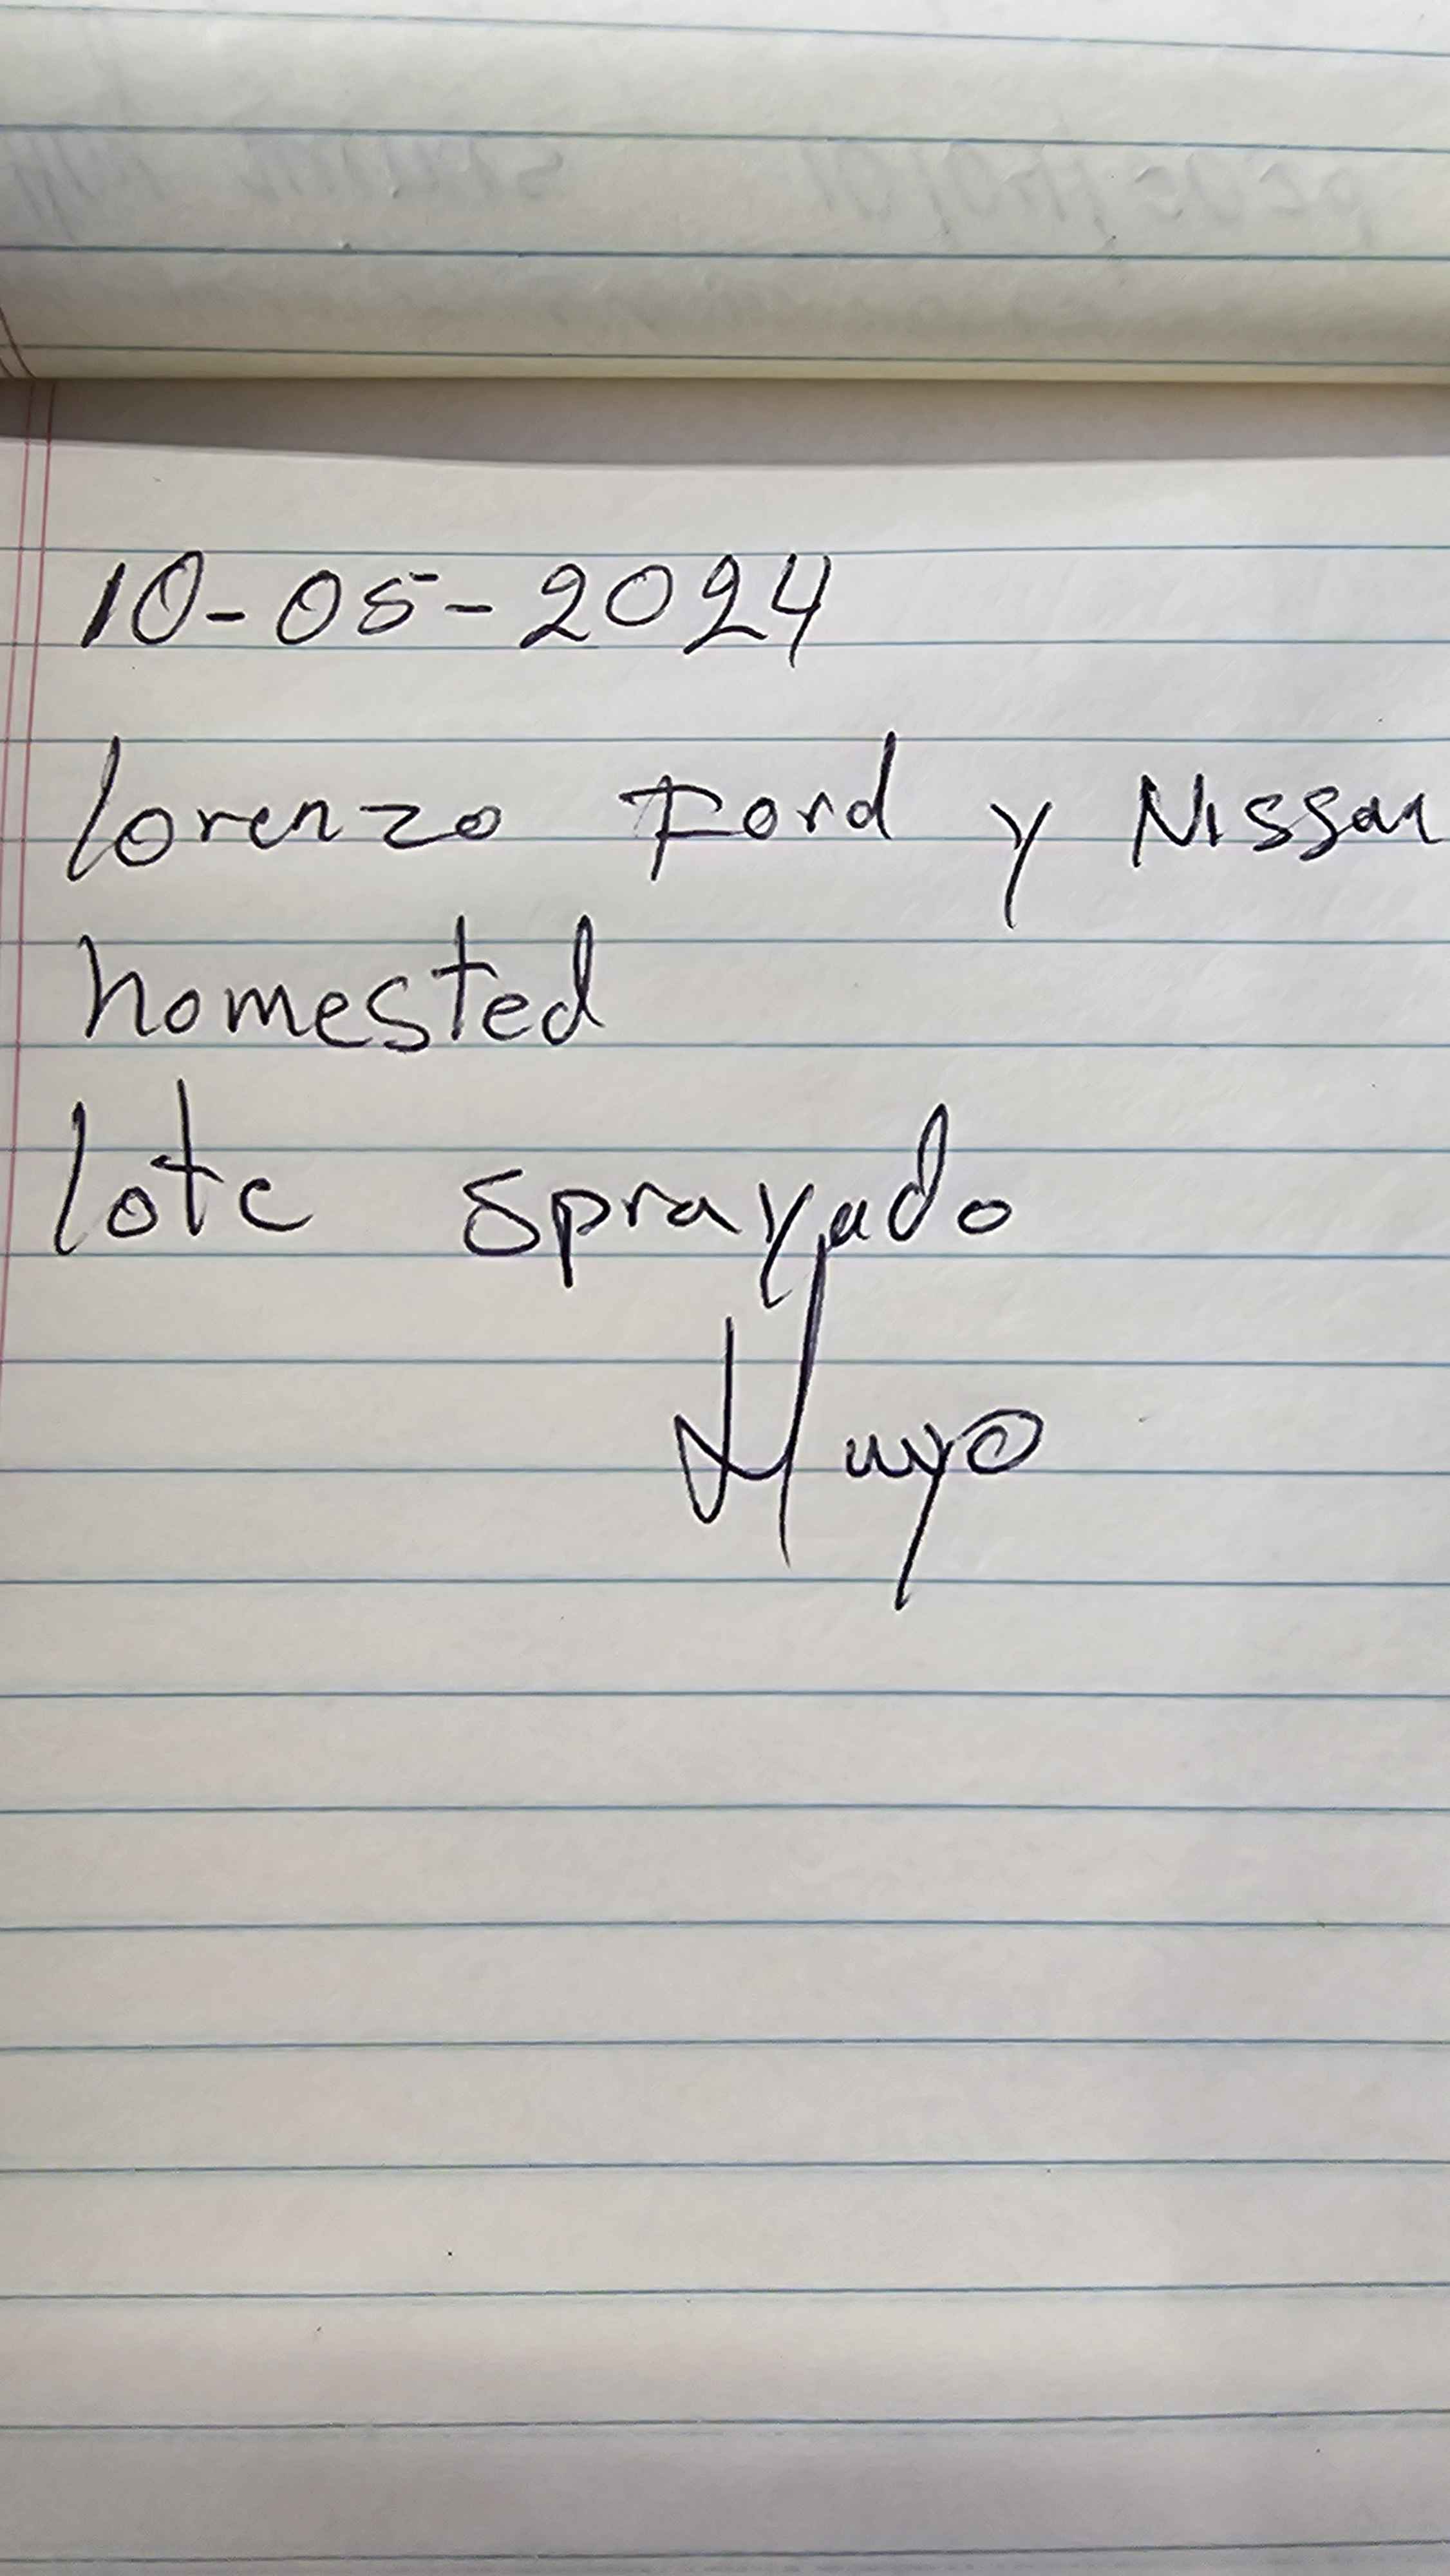 10-05-2024
lorenzo Ford y Nissan
homested
lote sprayado